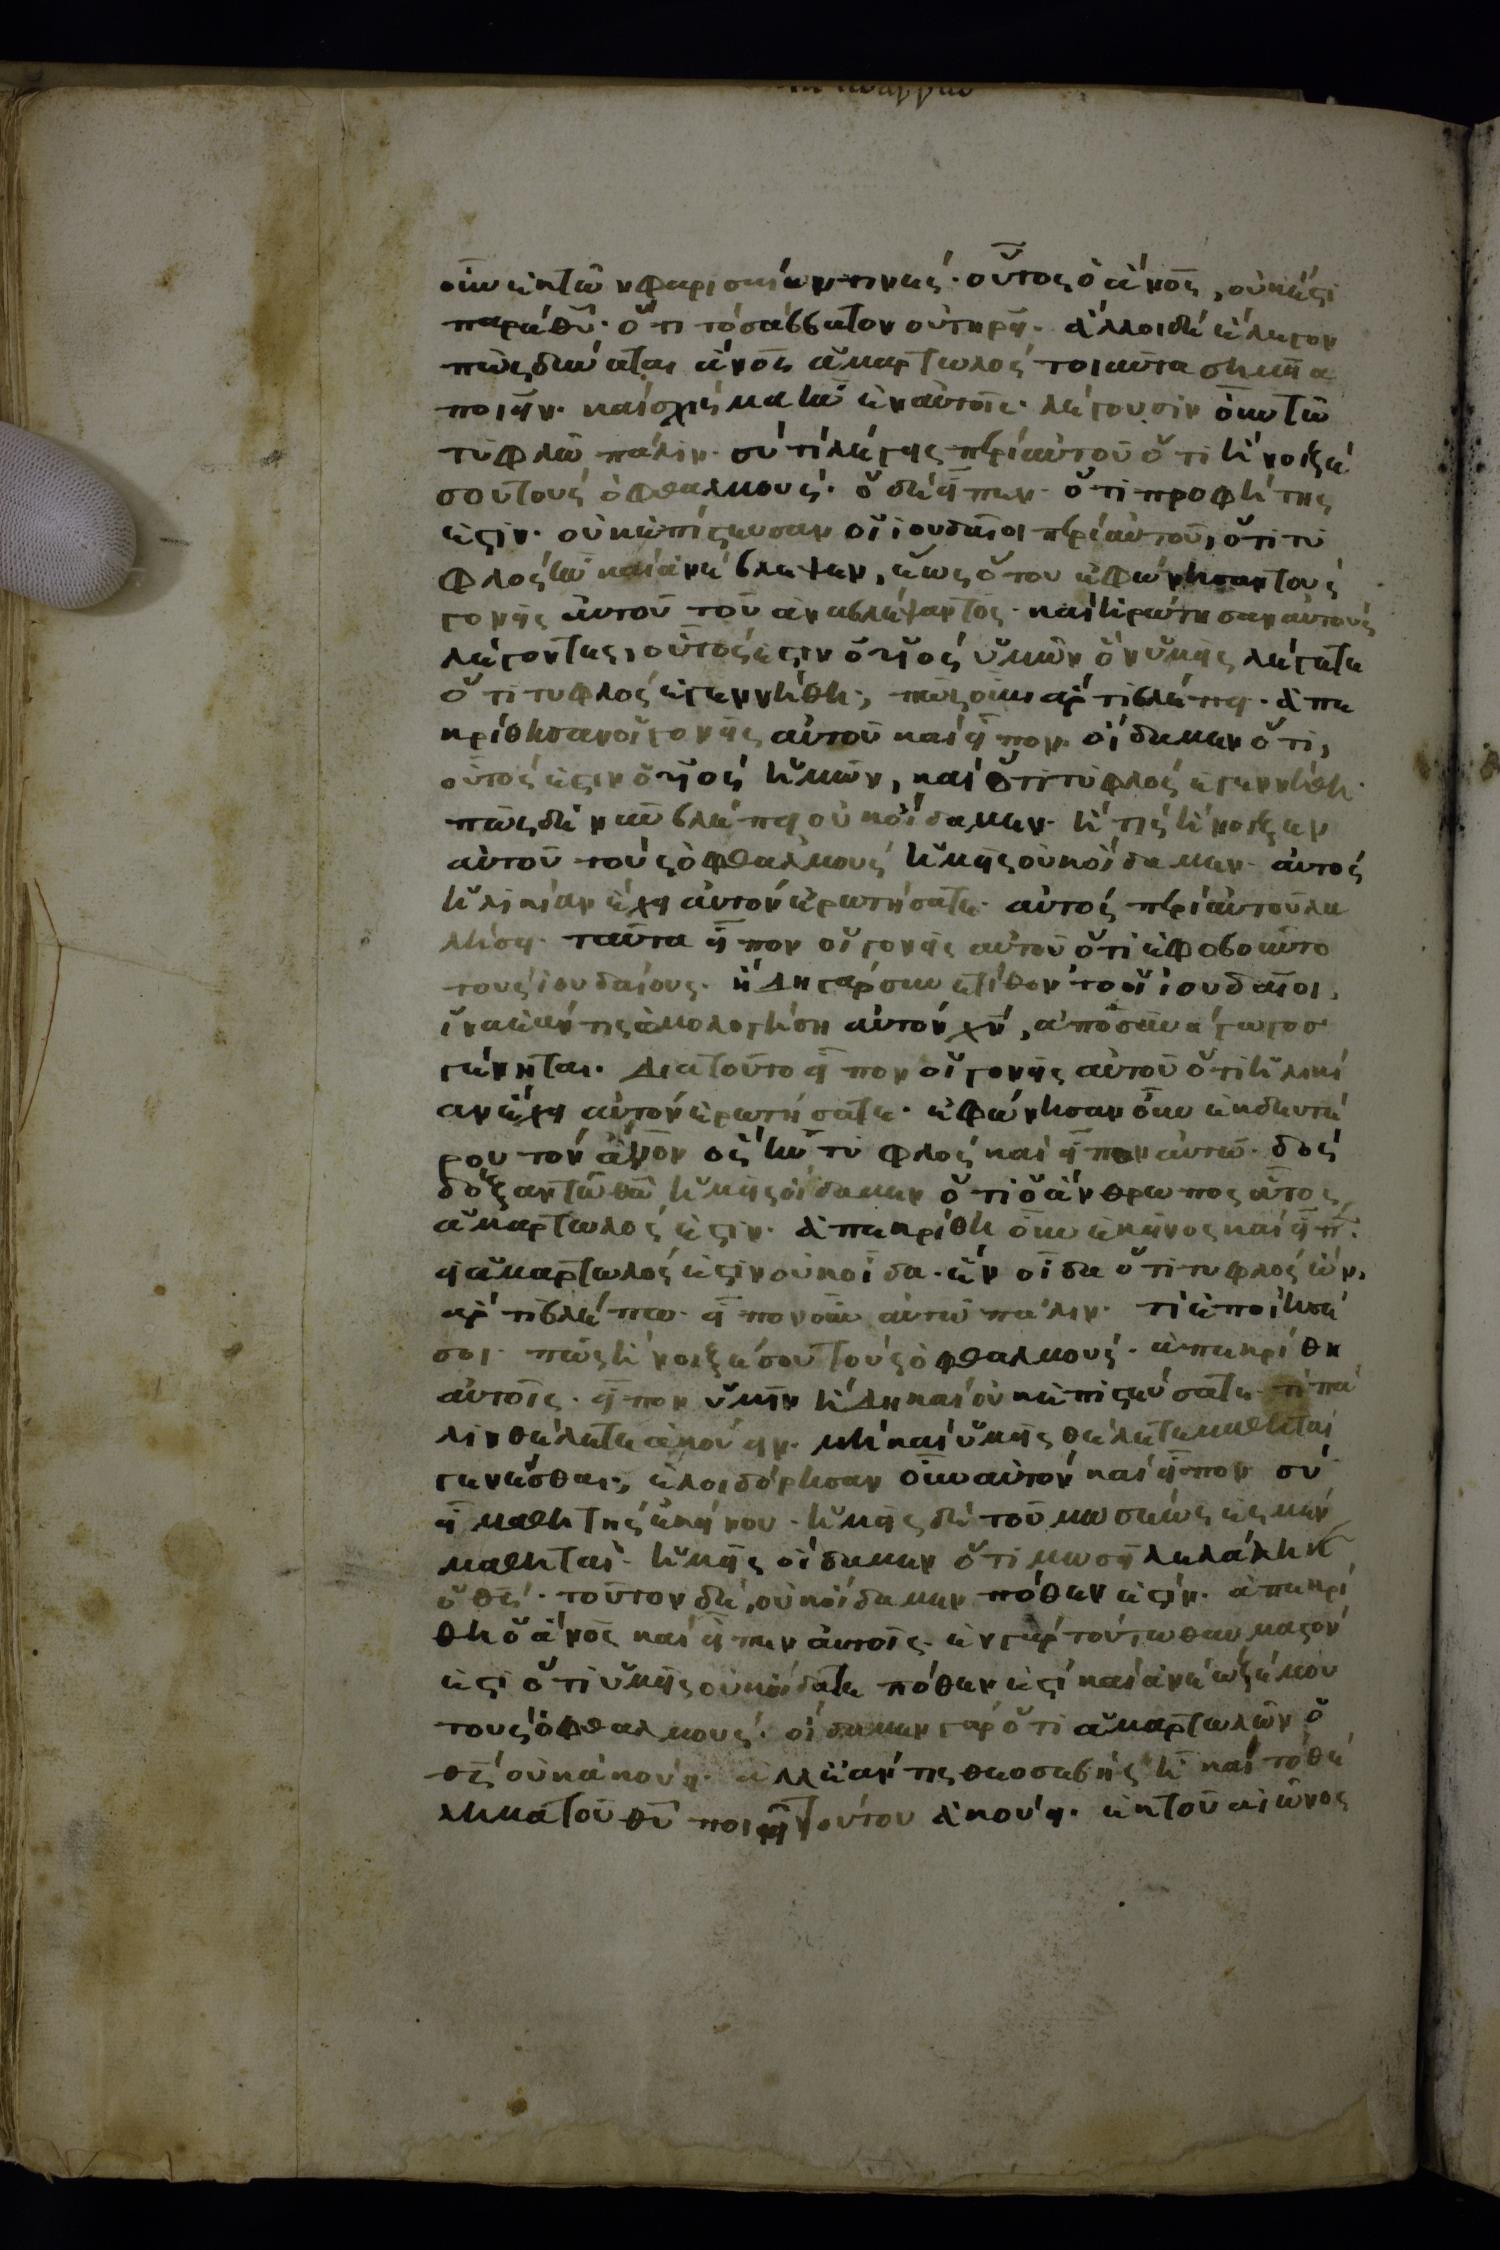 οὖν ἐκ τῶν φαρισαίων τινές· οὗτος ὁ ἄνος̅, οὐκ ἔστι
παρὰ θυ̅· ὅτι τὸ σάββατον οὐ τηρεῖ· ἄλλοι δὲ ἔλεγον
πῶς δύναται ἄνος̅ ἁμαρτωλὸς τοιαῦτα σημεῖα
ποιεῖν· καὶ σχίσμα ἦν ἐν αὐτοῖς· λέγουσιν οὖν τῶ
τυφλῶ πάλιν· σὺ τί λέγεις περὶ αὐτοῦ ὅτι ἤνοιξέ
σου τοὺς ὀφθαλμούς· ὁ δὲ εἶπεν· ὅτι προφήτης
ἐστίν· οὐκ ἐπίστευσαν οἱ ἰουδαῖοι περὶ αὐτοῦ, ὅτι τυ
φλὸς ἦν καὶ ἀνέβλεψεν, ἕως ὅτου ἐφώνησαν τοὺς
γονεῖς αὐτοῦ τοῦ ἀναβλέψαντος· καὶ ἠρώτησαν αὐτοὺς
λέγοντες, οὗτός ἐστιν ὁ υἱὸς ὑμῶν ὃν ὑμεῖς λέγετε
ὅτι τυφλὸς ἐγεννήθη; πῶς οὖν ἄρτι βλέπει· ἀπε
κρίθησαν οἱ γονεῖς αὐτοῦ καὶ εἶπον· οἴδαμεν ὅτι,
οὗτός ἐστιν ὁ υἱὸς ἡμῶν, καὶ ὅτι τυφλὸς ἐγεννήθη·
πῶς δὲ νῦν βλέπει οὐκ οἴδαμεν· ἢ τίς ἤνοιξεν
αὐτοῦ τοὺς ὀφθαλμοὺς ἡμεῖς οὐκ οἴδαμεν· αὐτὸς
ἡλικίαν ἔχει αὐτὸν ἐρωτήσατε· αὐτὸς περὶ αὐτοῦ λα
λήσει· ταῦτα εἶπον οἱ γονεῖς αὐτοῦ ὅτι ἐφοβοῦντο
τοὺς ἰουδαίους· ἤδη γὰρ συνετίθοντο οἱ ἰουδαῖοι,
ἵνα ἐάν τις ὁμολογήση αὐτὸν χν̅, ἀποσυνάγωγος
γένηται· Διὰ τοῦτο εἶπον οἱ γονεῖς αὐτοῦ ὅτι ἡλικί
αν ἔχει αὐτὸν ἐρωτήσατε· ἐφώνησαν οὖν ἐκ δευτέ
ρου τὸν ἄνον̅ ὃς ἦν τυφλὸς καὶ εἶπον αὐτῶ· δὸς
δόξαν τῶ θω̅ ἡμεῖς οἴδαμεν ὅτι ὁ ἄνθρωπος οὗτος
ἁμαρτωλός ἐστιν· ἀπεκρίθη οὖν ἐκεῖνος καὶ εἶπ·
εἰ ἁμαρτωλός ἐστιν οὐκ οἶδα· ἓν οἶδα ὅτι τυφλὸς ὢν,
ἄρτι βλέπω· εἶπον οὖν αὐτῶ πάλιν· τί ἐποίησέ
σοι· πῶς ἤνοιξέ σου τοὺς ὀφθαλμούς· ἀπεκρίθη
αὐτοῖς· εἶπον ὑμῖν ἤδη καὶ οὐκ ἐπιστεύσατε· τί πά
λιν θέλετε ἀκούειν· μὴ καὶ ὑμεῖς θέλετε μαθηταὶ
γενέσθαι; ἐλοιδόρησαν οὖν αὐτὸν καὶ εἶπον σὺ
εἶ μαθητὴς ἐκείνου· ἡμεῖς δὲ τοῦ μωσέως ἐσμὲν
μαθηταί· ἡμεῖς οἴδαμεν ὅτι μωσῆ λελάληκ
ὁ θς̅· τοῦτον δὲ, οὐκ οἴδαμεν πόθεν ἐστίν· ἀπεκρί
θη ὁ ἄνος̅ καὶ εἶπεν αὐτοῖς· ἐν γὰρ τούτω θαυμαστόν
ἐστι ὅτι ὑμεῖς οὐκ οἴδατε πόθεν ἐστὶ καὶ ἀνέωξέ μου
τοὺς ὀφθαλμούς· οἴδαμεν γὰρ ὅτι ἁμαρτωλῶν ὁ
θς̅ οὐκ ἀκούει· ἀλλ' ἐάν τις θεοσεβὴς ἦ καὶ τὸ θέ
λημα τοῦ θυ̅ ποιεῖ τούτου ἀκούει· ἐκ τοῦ αἰῶνος